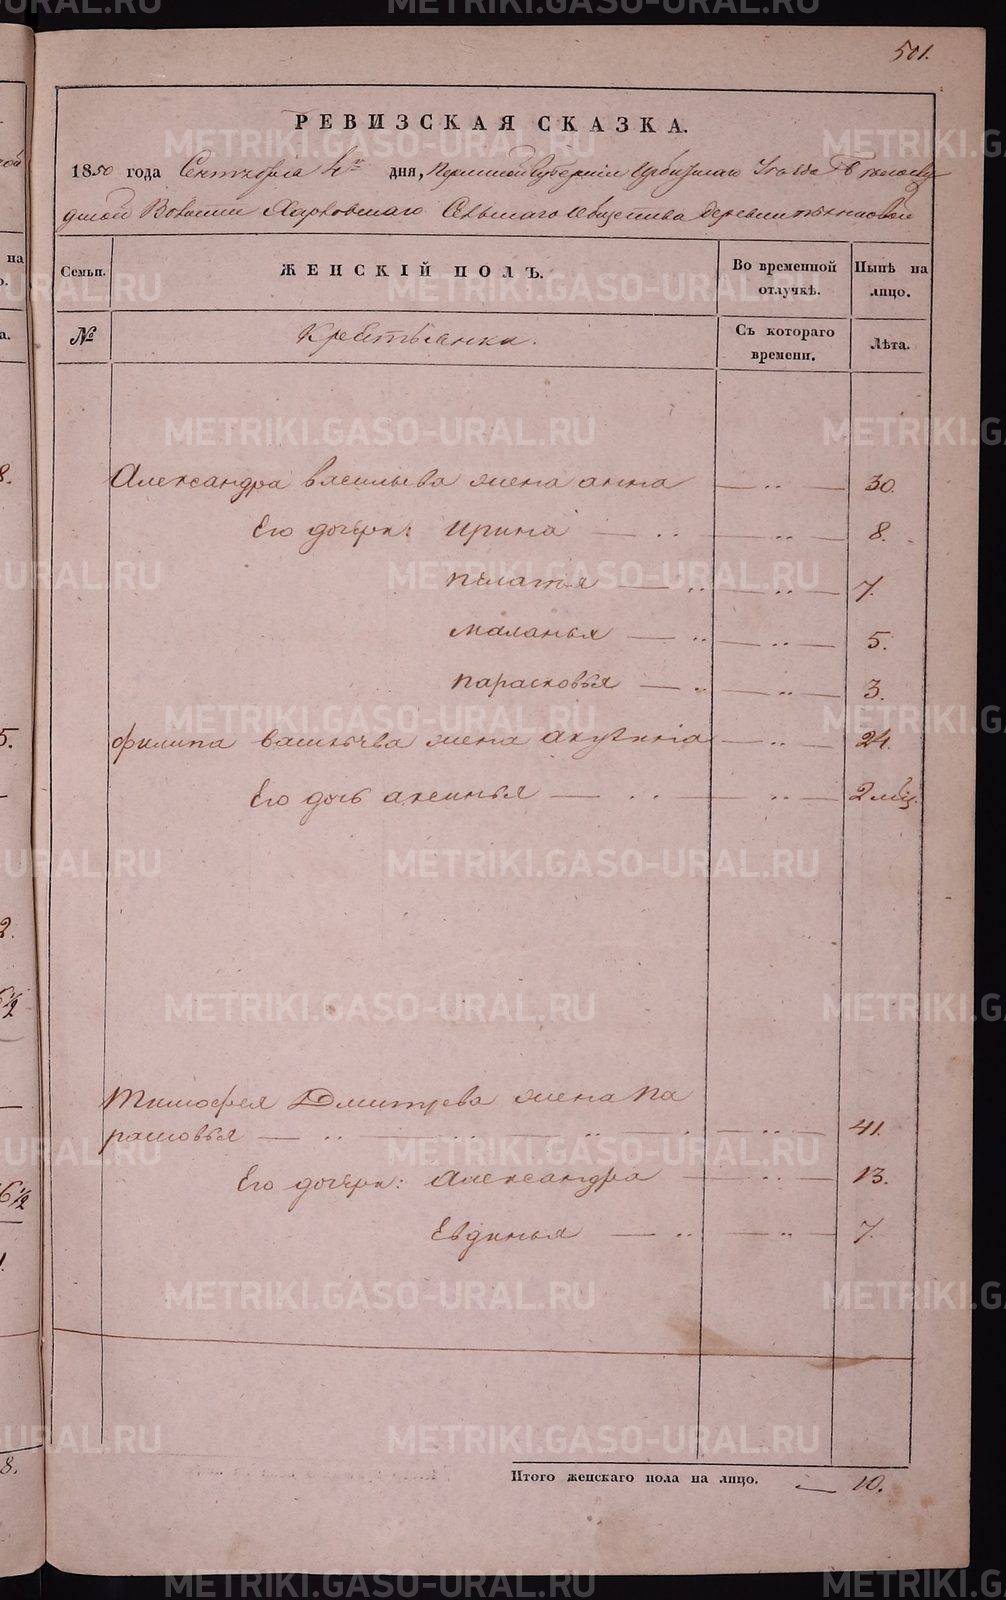 501.
РЕВИЗСКАЯ СКАЗКА.
1850 года Сентября 4го дня, Пермской Губернии Ирбитскаго Уезда
Волости Харловскаго Сельскаго общества Деревни
Семьи. ЖЕНСКІЙ ПОЛЪ. Во временной отлучкѣ. Нынѣ на лицо.
№ Крестьянки. Съ котораго времени. Лѣта.
Александра васильева жена анна — „ — 30.
Его дочери: Ирина — „ — „ — 8.
пелагея — „ — „ — 7.
маланья — „ — „ — 5.
парасковья — „ — „ — 3.
филипа васильева жена акулина — „ — 24.
Его дочь аксинья — „ — „ — 2 мѣц.
Тимофея Дмитрева жена Па
расковья — „ — „ — „ — „ — 41.
Его дочери: Александра — „ — 13.
Евдинья — „ — „ — 7.
Итого женскаго пола на лицо. — 10.
METRIKI.GASO-URAL.RU